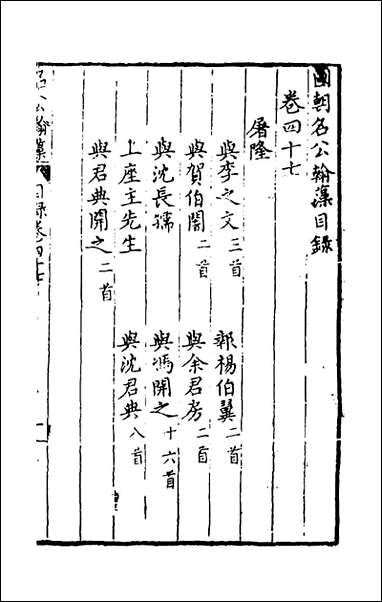 國朝名公翰藻目錄
卷四十七
屠隆
與李之文三首
報楊伯翼二首
與賀伯闇二首
與余君房二首
與沈長孺
與馮開之十六首
上座主先生
與沈君典八首
與君典開之二首
名公翰藻
目錄卷四十七